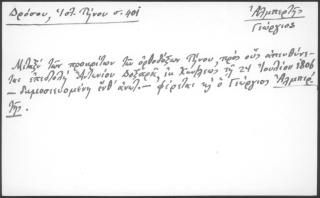 Δρόσου, Ἱστ. Τήνου σ. 401
Ἀλμπέρτης
Γεώργιος
Μεταξὺ τῶν προκρίτων τῶν ὀρθοδόξων Τήνου, πρὸς οὓς ἀπευθύνε-
ται ἐπιστολὴ Ἀντωνίου Δοξαρᾶ, ἐκ τῇ 24 Ἰουλίου 1806
— δημοσιευομένη ἔνθ' ἀνωτ. — φέρεται κ̀ ὁ Γεώργιος Ἀλμπέρ-
της.